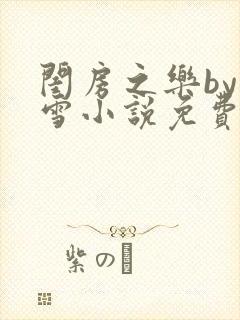 閨房之樂by
雪小說免費
紫の